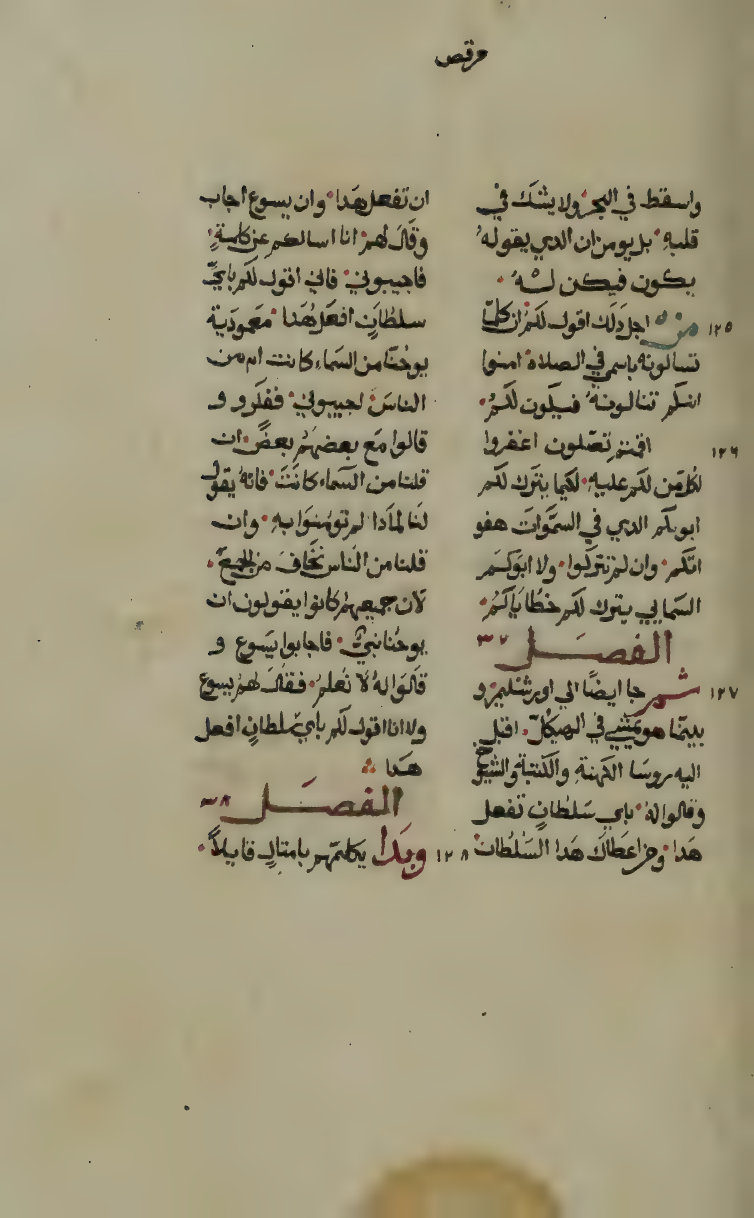 مرقص
واسقط في البحر ولا يشك في
قلبه بل يومن ان الدي يقوله
يكون فيكن له
١٢٥ من اجل دلك اقول لكم ان كلما
تسالونه باسمي في الصلاة امنوا
انكم تنالونه فيكون لكم
١٢٦ اقمتم تصلون اغفروا
لكل من لكم عليه لكيما يترك لكم
ابوكم الدي في السموات هفو
اتكم وان لم تتركوا ولا ابوكم
السمايي يترك لكم خطاياكم
الفصل ٣٧
١٢٧ ثم جا ايضا الى اورشليم و
بينما هو يمشي في الهيكل اقبل
اليه روسا الكهنة والكتبة والشيوخ
وقالوا له باي سلطان تفعل
هدا ومن اعطاك هدا السلطان
ان تفعل هدا وان يسوع اجاب
وقال لهم انا اسالكم عن كلمة
فاجيبوني فاني اقول لكم باي
سلطان افعل هدا معمودية
يوحنا من السماء كانت ام من
الناس اجيبوني ففكروا و
قالوا مع بعضهم بعض ان
قلنا من السماء كانت فانه يقول
لنا لمادا لم تومنوا به وان
قلنا من الناس نخاف من الجميع
لان جميعهم كانوا يقولون ان
يوحنا نبي فاجابوا يسوع و
قالوا له لا نعلم فقال لهم يسوع
ولا انا اقول لكم باي سلطان افعل
هدا
الفصل ٣٨
١٢٨ وبدا يكلمهم بامتال قايلا